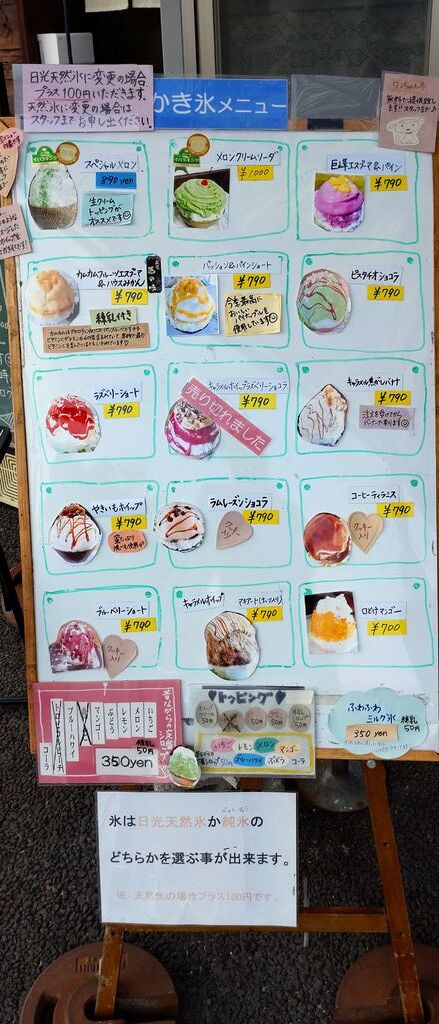 日光天然氷に変更の場合
プラス100円いただきます。
天然氷に変更の場合は
スタッフまでお申し出ください。
かき氷メニュー
ワンちゃん氷
スペシャルメロン
890 yen
生クリーム
トッピングが
オススメです
メロンクリームソーダ
¥1000
巨峰エスプーマ&パイン
¥790
カムカムフルーツエスプーマ
&ハウスみかん
¥790
練乳付き
パッション&パインショート
¥790
今季最高に
おいしい
パイナップルを
使用しています
ピスタチオショコラ
¥790
ラズベリーショート
¥790
キャラメルホイップラズベリーショコラ
¥790
売り切れました
キャラメル焦がしバナナ
¥790
注文を受けてから
バーナーで炙ります
やきいもホイップ
¥790
ラムレーズンショコラ
¥790
コーヒーティラミス
¥790
クッキー
入り
ブルーベリーショート
¥790
クッキー
入り
キャラメルホイップ
マキアート(ナッツ入り)
¥790
口どけマンゴー
¥700
昔ながらの定番
シロップ
いちご
メロン
レモン
ぶどう
マンゴー
ブルーハワイ
コーラ
練乳
50円
350yen
トッピング
いちご レモン メロン マンゴー
ブルーハワイ ぶどう コーラ
ふわふわ
ミルク氷
練乳
50円
350 yen
氷は日光天然氷か純氷の
どちらかを選ぶ事が出来ます。
※ 天然氷の場合プラス100円です。